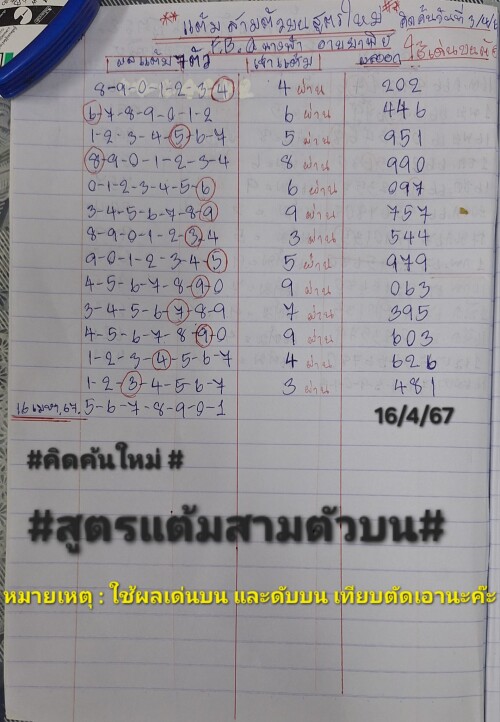 ** แต้มสามตัวบนสูตรใหม่ ** คิดค้นวันที่ 3/4/6
F.B. ดาวฟ้า อาณาพืช ใช้เด่นบนตัด
ผลแต้ม 7 ตัว เข้าแต้ม ผลออก
8-9-0-1-2-3-4 4 ผ่าน 202
6-7-8-9-0-1-2 6 ผ่าน 446
1-2-3-4-5-6-7 5 ผ่าน 951
8-9-0-1-2-3-4 8 ผ่าน 990
0-1-2-3-4-5-6 6 ผ่าน 097
3-4-5-6-7-8-9 9 ผ่าน 757
8-9-0-1-2-3-4 3 ผ่าน 544
9-0-1-2-3-4-5 5 ผ่าน 979
4-5-6-7-8-9-0 9 ผ่าน 063
3-4-5-6-7-8-9 7 ผ่าน 395
4-5-6-7-8-9-0 9 ผ่าน 603
1-2-3-4-5-6-7 4 ผ่าน 626
1-2-3-4-5-6-7 3 ผ่าน 481
16 เมษา,67. 5-6-7-8-9-0-1 16/4/67
#คิดค้นใหม่ #
#สูตรแต้มสามตัวบน#
หมายเหตุ : ใช้ผลเด่นบน และดับบน เทียบตัดเอานะค๊ะ